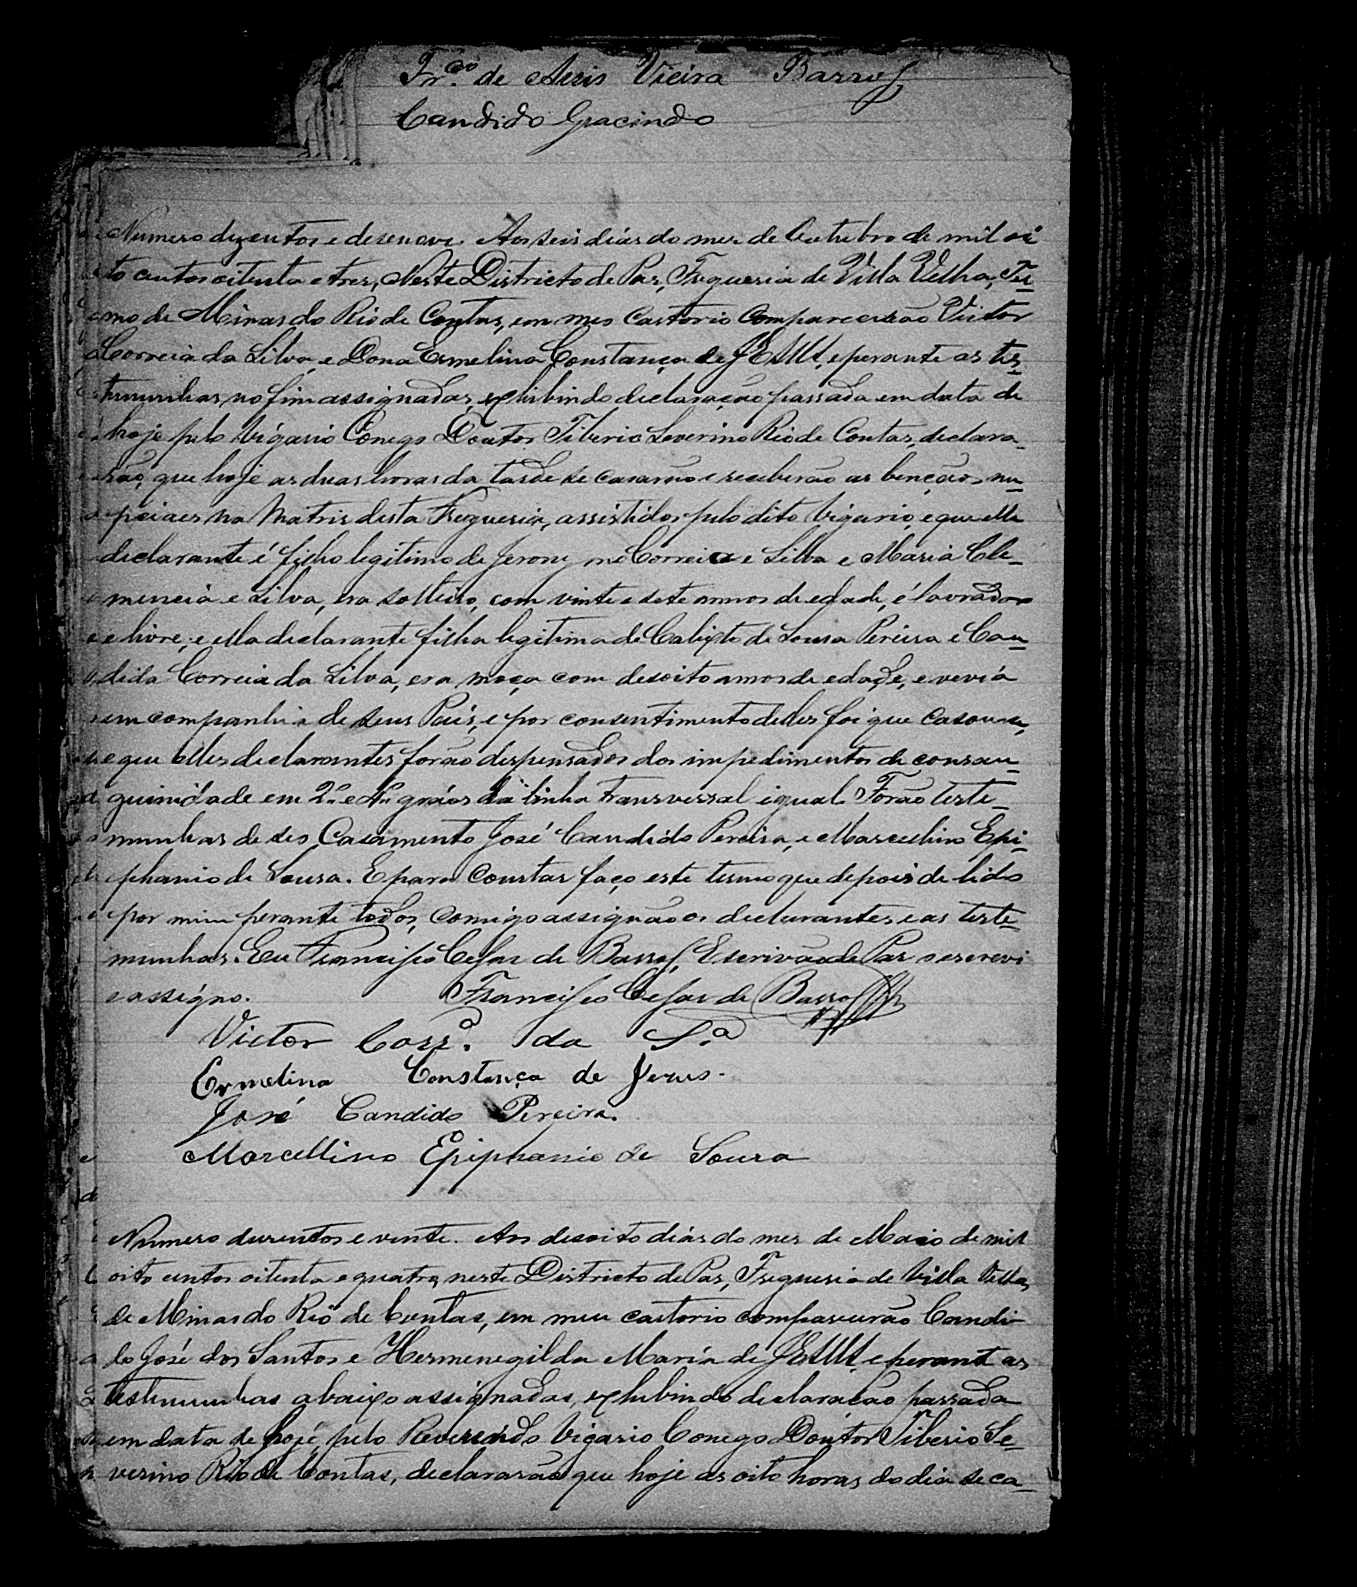 Fr.co de Assis Vieira Barros
Candido Gracindo
Numero dusentos e desenove. Aos seis dias do mez de Outubro de mil oi
to centos oitenta e tres, Neste Districto de Paz, Freguesia de Villa Velha, Ter
mo de Minas do Rio de Contas, em meo Cartorio Comparecerão Victor
Correia da Silva, e Dona Ermelina Constança de JESUS, e perante as tes
timunhas no fim assignadas, exhibindo declaração passada em data de
hoje pelo Vigario Cónego Doutor Tiberio Severino Rio de Contas, declara-
rão, que hoje as duas horas da tarde se casarão e receberão as benções nu
pciaes na Matris desta Freguesia, assistidos pelo dito Vigario, e que elle
declarante é filho legitimo de Jerony mo Correia e Silva e Maria Cle-
mencia e Silva, era solteiro, com vinte e sete annos de edade, é lavrador
e livre; e ella declarante filha legitima de Calixto de Sousa Pereira e Can
dida Correia da Silva, era moça com desoito annos de edade, e vevia
em companhia de seus Pais, e por consentimento delles foi que casou-se,
e que elles declarantes forão despensados dos impedimentos de consan
guinidade em 2º e 4º gráos da linha transversal igual. Forão teste-
munhas de seo Casamento José Candido Pereira, e Marcellino Epi-
phanio de Sousa. E para Constar faço este termo que depois de lido
por mim perante todos, comigo assignão os declarantes e as teste-
munhas. Eu Francisco Cesar de Barros, Escrivão de Paz o escrevi
e assigno. Francisco Cesar de Barros
Victor Corr.a da S.a
Ermelina Constança de Jezus.
José Candido Pereira.
Marcellino Epiphanio de Souza
Numero dusentos e vinte. Aos desoito dias do mez de Maio de mil
oito centos oitenta e quatro, neste Districto de Paz, Freguesia de Villa Velha,
de Minas do Rio de Contas, em meu cartorio comparecerão Candi-
do José dos Santos e Hermenegilda Maria de JESUS, e perante as
testimunhas abaixo assignadas, exhibindo declaração passada
em data de hoje pelo Reverendo Vigario Conego Doutor Tiberio Se-
verino Rio de Contas, declararão que hoje as oito horas do dia se ca-